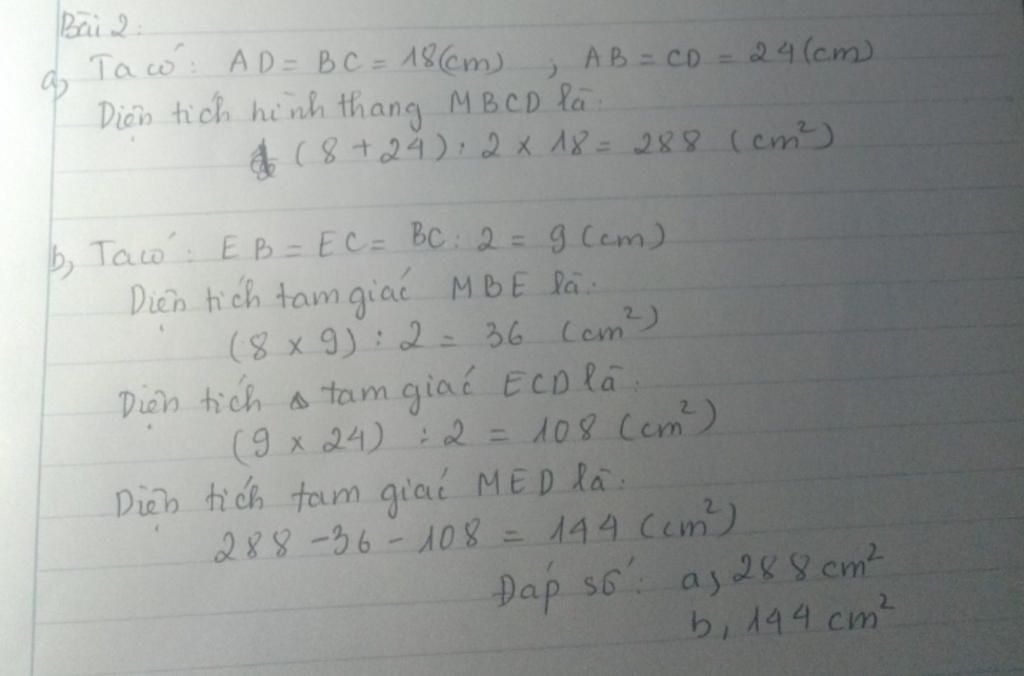 Bài 2:
a, Ta có: AD = BC = 18(cm) ; AB = CD = 24(cm)
Diện tích hình thang MBCD là:
(8 + 24) : 2 x 18 = 288 (cm²)
b, Ta có: EB = EC = BC : 2 = 9 (cm)
Diện tích tam giác MBE là:
(8 x 9) : 2 = 36 (cm²)
Diện tích tam giác ECD là:
(9 x 24) : 2 = 108 (cm²)
Diện tích tam giác MED là:
288 - 36 - 108 = 144 (cm²)
Đáp số: a, 288 cm²
b, 144 cm²